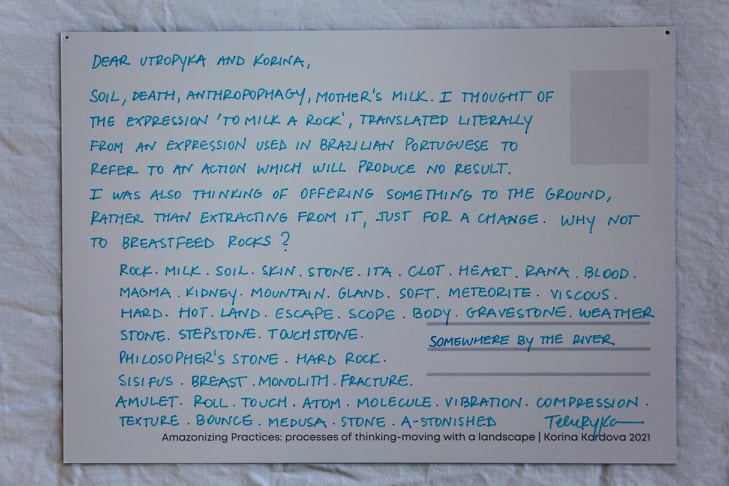 DEAR UTROPYKA AND KORINA,
SOIL, DEATH, ANTHROPOPHAGY, MOTHER'S MILK. I THOUGHT OF
THE EXPRESSION 'TO MILK A ROCK', TRANSLATED LITERALLY
FROM AN EXPRESSION USED IN BRAZILIAN PORTUGUESE TO
REFER TO AN ACTION WHICH WILL PRODUCE NO RESULT.
I WAS ALSO THINKING OF OFFERING SOMETHING TO THE GROUND,
RATHER THAN EXTRACTING FROM IT, JUST FOR A CHANGE. WHY NOT
TO BREASTFEED ROCKS?
ROCK. MILK. SOIL. SKIN. STONE. ITA. CLOT. HEART. RANA. BLOOD.
MAGMA. KIDNEY. MOUNTAIN. GLAND. SOFT. METEORITE. VISCOUS.
HARD. HOT. LAND. ESCAPE. SCOPE. BODY. GRAVESTONE. WEATHER
STONE. STEPSTONE. TOUCHSTONE.
SOMEWHERE BY THE RIVER
PHILOSOPHER'S STONE. HARD ROCK.
SISIFUS. BREAST. MONOLITH. FRACTURE.
AMULET. ROLL. TOUCH. ATOM. MOLECULE. VIBRATION. COMPRESSION.
TEXTURE. BOUNCE. MEDUSA. STONE. A-STONISHED
Amazonizing Practices: processes of thinking-moving with a landscape | Korina Kordova 2021